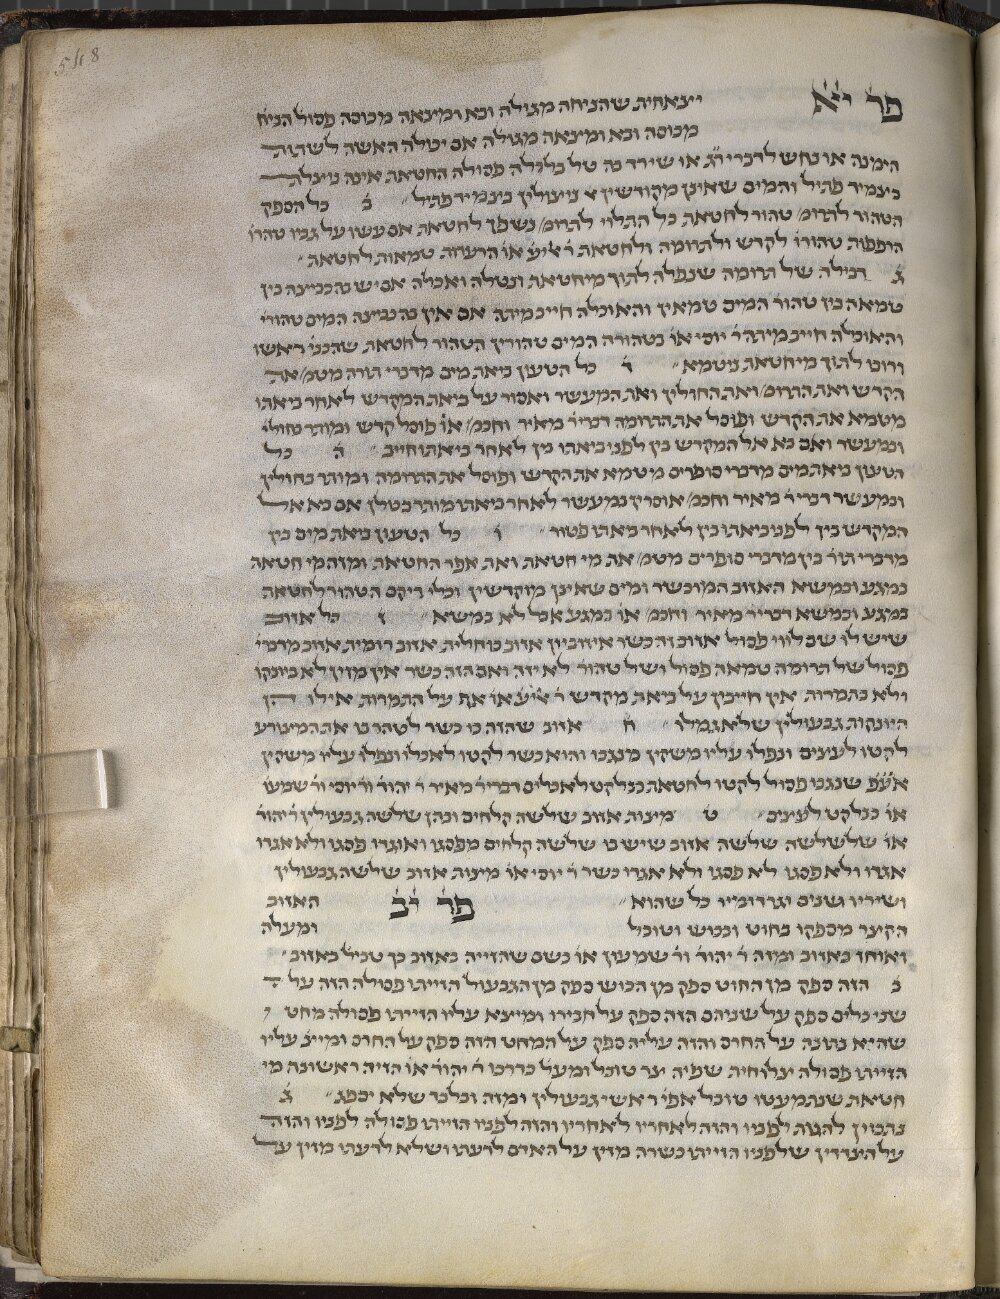 548
פר׳ י״א ׳יצאחית שהניחה מגולה ובא ומיצאה מכוסה פסול הניח
מכוסה ובא ומיצאה מגולה אם יכולה האשה לשתות
הימנה או נחש לדברי ר׳ג׳ או שירד בה טל בלילה פסולה החטאת אינה ניצלת
בצמיד פתיל והמים שאינן מקודשין ניצולין בצמיד פתיל ב כל הספק
הטהור לתרומ׳ טהור לחטאת כל התלוי לתרומ׳ נשפך לחטאת אם עשו על גביו טהרו׳
הרפפות טהורו׳ לקדש ולתרומה ולחטאת ר׳ אליע׳ או׳ הרעדות טמאות לחטאת
ג דבילה של תרומה שנפלה לתוך מי חטאת ונטלה ואכלה אם יש בה כביצה בין
טמאה בין טהור׳ המים טמאין והאוכלה חייב מיתה אם אין בה כביצה המים טהורי׳
והאוכלה חייב מיתה ר׳ יוסי או׳ בטהורה המים טהורין הטהור לחטאת שהכניס ראשו
ורובו לתוך מי חטאת ניטמא ד כל הטעון ביאת מים מדברי תורה מטמ׳ את
הקדש ואת התרומ׳ ואת החולין ואת המעשר ואסור על ביאת המקדש לאחר ביאתו
מטמא את הקדש ופוסל את התרומה דברי ר׳ מאיר וחכמ׳ או׳ פוסל קדש ומותר בחולי׳
ובמעשר ואם בא אל המקדש בין לפני ביאתו בין לאחר ביאתו חייב ה כל
הטעון ביאת מים מדברי סופרים מטמא את הקדש ופוסל את התרומה ומותר בחולין
ובמעשר דברי ר׳ מאיר וחכמ׳ אוסרין במעשר לאחר ביאתו מותר בכולן אם בא אל
המקדש בין לפני ביאתו בין לאחר ביאתו פטור ו כל הטעון ביאת מים בין
מדברי תור׳ בין מדברי סופרים מטמ׳ את מי חטאת ואת אפר החטאת ומזה מי חטאת
במגע ובמשא האזוב המוכשר ומים שאינן מוקדשין וכלי ריקם הטהור לחטאת
במגע ובמשא דברי ר׳ מאיר וחכמ׳ או׳ במגע אבל לא במשא ז כל אזוב
שיש לו שם לווי פסול אזוב זה כשר איזוביין אזוב כוחלית אזוב רומית אזוב מדברי׳
פסול של תרומה טמאה פסול ושל טהור׳ לא יזה ואם הזה כשר אין מזין לא ביונקו׳
ולא בתמרות אין חייבין על ביאת מקדש ר׳ אליע׳ או׳ אף על התמרות אילו הן
היונקות גבעולין שלא גמלו ח אזוב שהזה בו כשר לטהר בו את המצורע
לקטו לעצים ונפלו עליו משקין מנגבו והוא כשר לקטו לאכלו ונפלו עליו משקין
אע״פ שנגבו פסול לקטו לחטאת כנלקט לאכלים דברי ר׳ מאיר ר׳ יהוד׳ ור׳ יוסי ור׳ שמעו׳
או׳ כנלקט לעצים ט מיצות אזוב שלשה קלחים ובהן שלשה גבעולין ר׳ יהוד׳
או׳ של שלשה שלשה אזוב שיש בו שלשה קלחים מפסגו ואוגדו פסגו ולא אגדו
אגדו ולא פסגו לא פסגו ולא אגדו כשר ר׳ יוסי או׳ מיצות אזוב שלשה גבעולין
ושיריו שנים וגרדומיו כל שהוא פר׳ י״ב האזוב
הקיצר מספקו בחוט ובכוש וטובל ומעלה
ואוחז באזוב ומזה ר׳ יהוד׳ ור׳ שמעון או׳ כשם שהזייה באזוב כך טביל באזוב
ב הזה ספק מן החוט ספק מן הכוש ספק מן הגבעול הזייתו פסולה הזה על
שני כלים ספק על שניהם הזה ספק על חבירו ומייצא עליו הזייתו פסולה מחט
שהיא נתונה על החרס והזה עליה ספק על המחט הזה ספק על החרס ומייצ׳ עליו
הזייתו פסולה צלוחית שפיה יצר טובל ומעל׳ כדרכו ר׳ יהוד׳ או׳ הזיה ראשונה מי
חטאת שנתמעטו טובל אפי׳ ראשי גבעולין ומזה ובלבד שלא יספג ג
נתכוין להזות לפניו והזה לאחריו לאחריו והזה לפניו הזייתו פסולה לפניו והזה
על הצדדין שלפניו הזייתו כשרה מזין על האדם לדעתו ושלא לדעתו מזין על